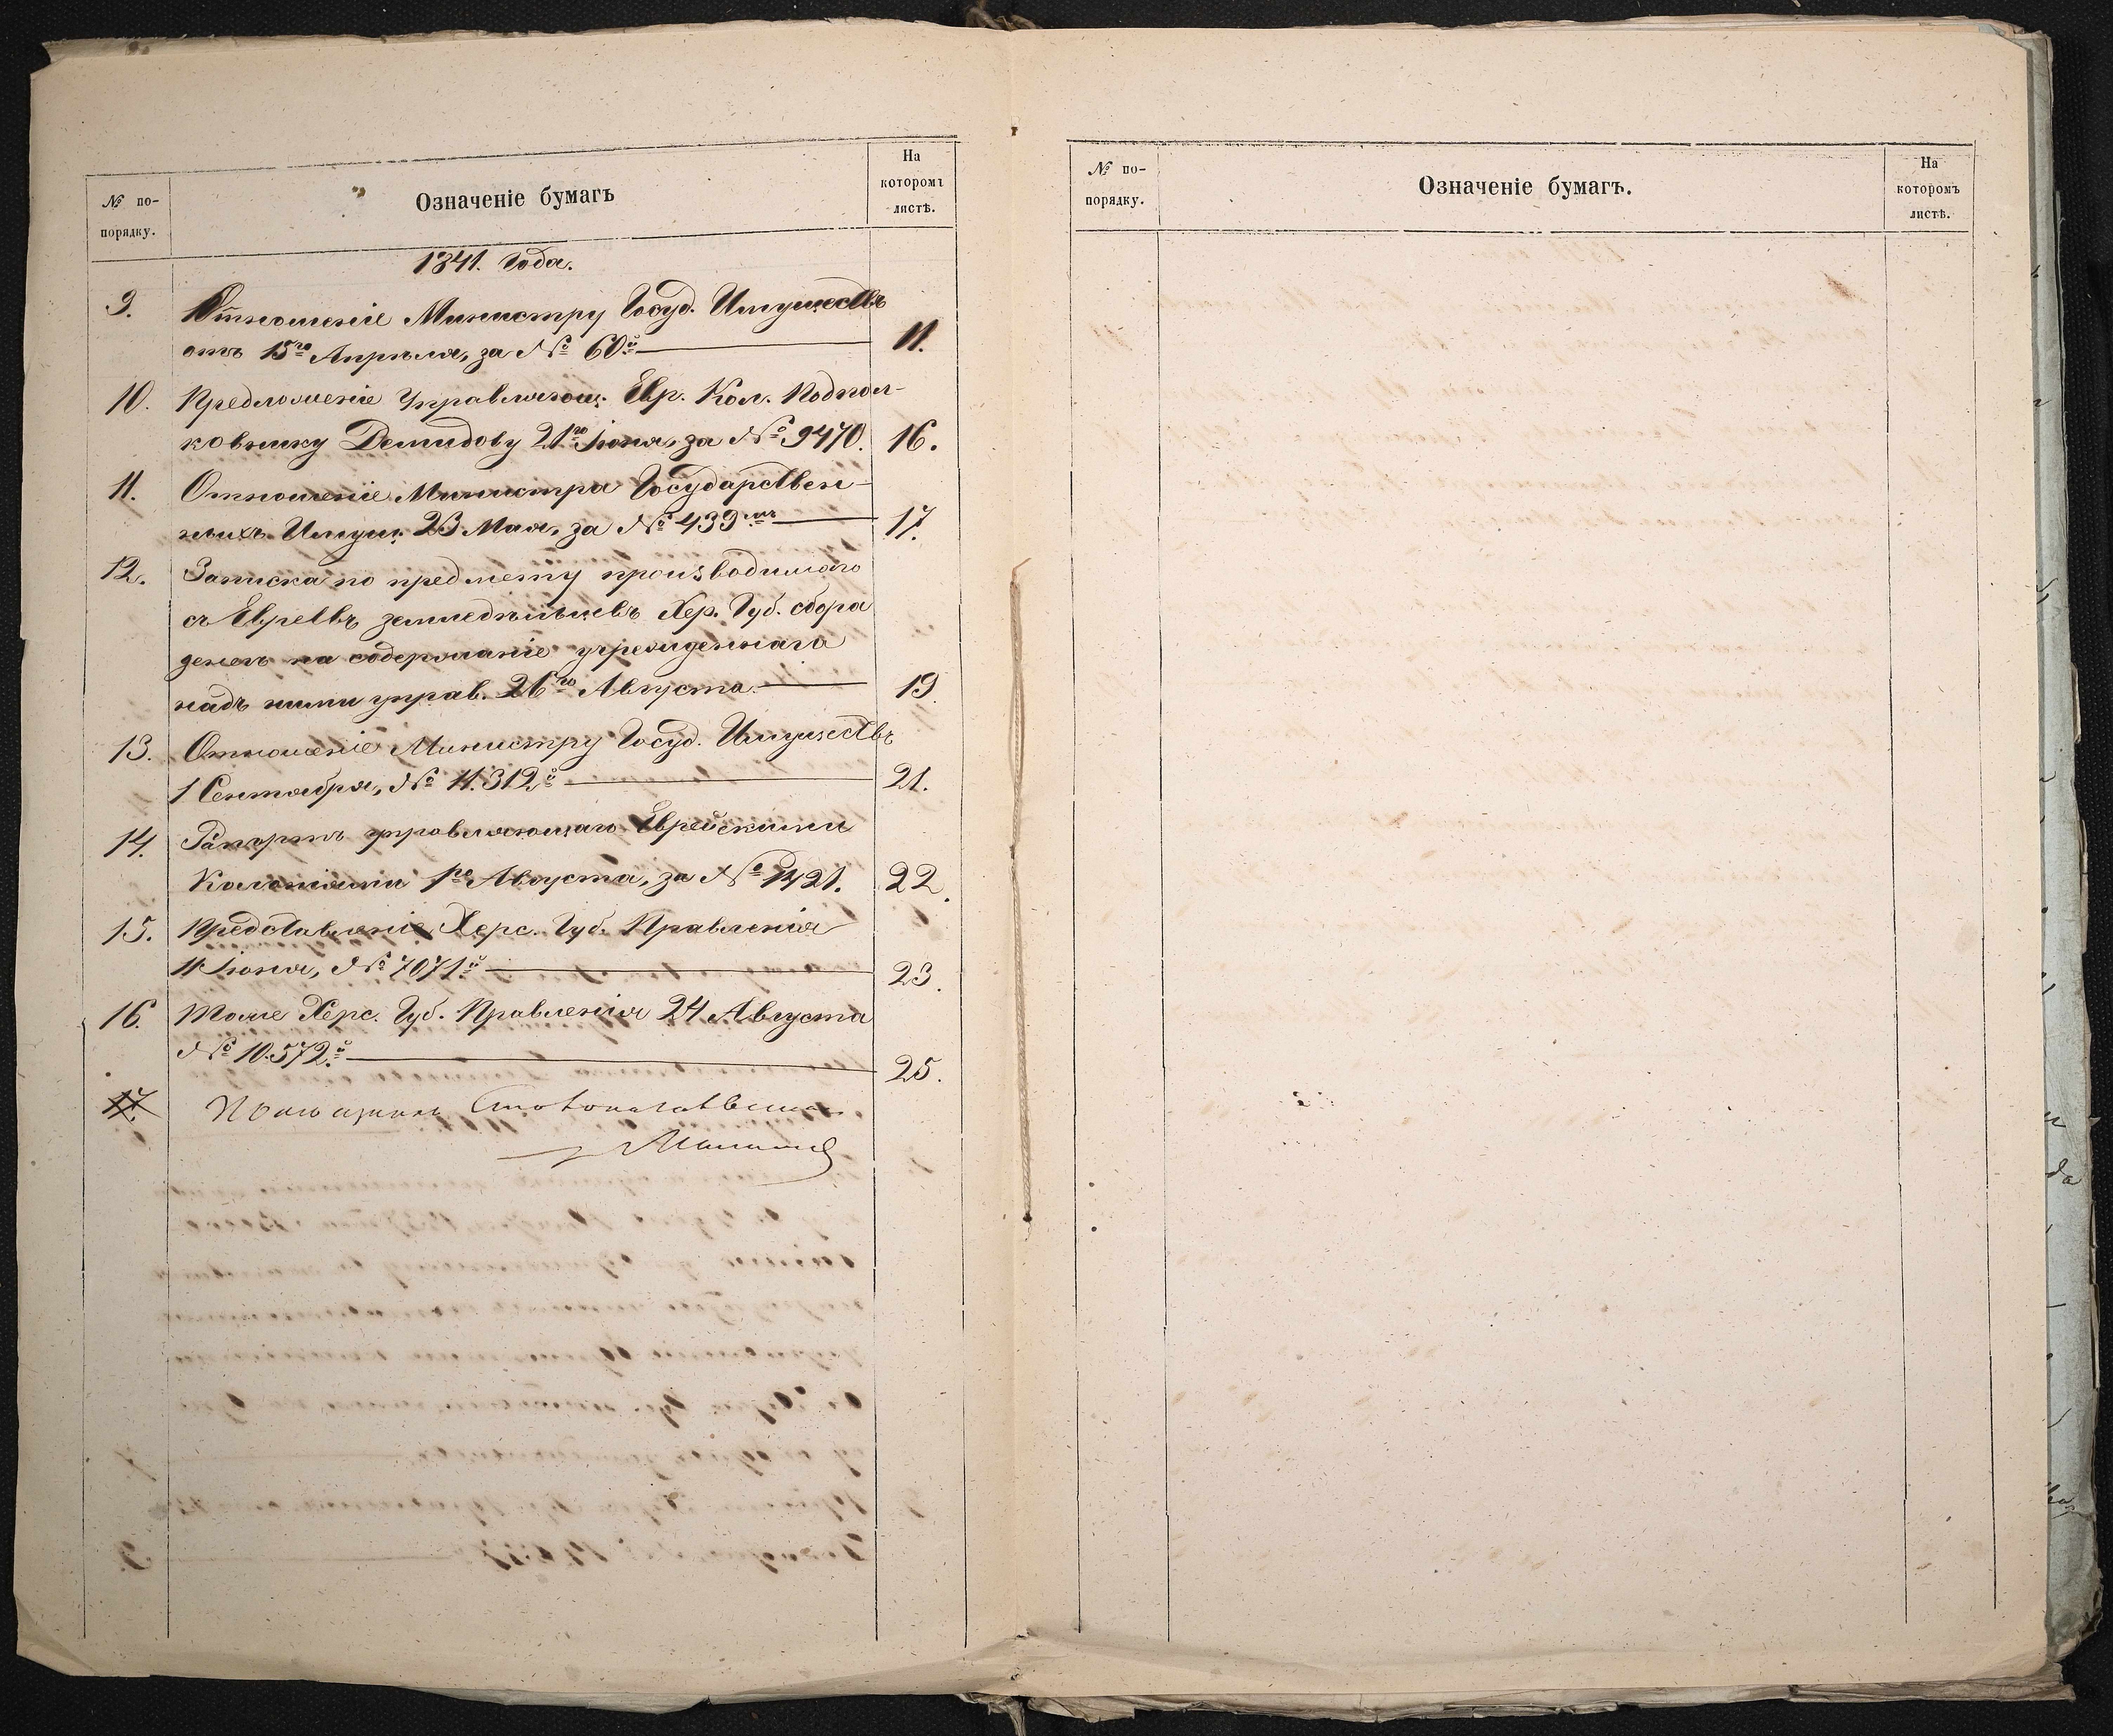 № по-
порядку.
Означеніе бумагъ
На
которомъ
листѣ.
1841. Года.
9.
Отношеніе Министру Госуд. Имуществъ
отъ 15го Апрѣля, за № 60й
11.
10.
Предложеніе Управляющ. Евр. Кол. Подпол-
ковнику Демидову 21го Іюня, за № 9470.
16.
11.
Отношеніе Министра Государствен-
ныхъ Имущ. 23 Мая, за № 439мъ
17.
12.
Записка по предмету производимаго
съ Евреевъ земледѣльцевъ Хер. Губ. сбора
денегъ на содержаніе учрежденнаго
надъ ними управ. 26го Августа.
19.
13.
Отношеніе Министру Госуд. Имуществъ
1 Сентября, № 11.312й
21.
14.
Рапортъ управляющаго Еврейскими
Колоніями 1го Августа, за № 1421.
22.
15.
Представленіе Херс. Губ. Правленія
11 Іюня, № 7071й
23.
16.
Тоже Херс. Губ. Правленія 24 Августа
№ 10.572й
25.
17.
№ по-
порядку.
Означеніе бумагъ.
На
которомъ
листѣ.